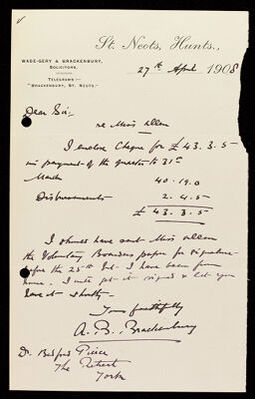 St. Neots, Hunts.,
WADE-GERY & BRACKENBURY,
SOLICITORS.
TELEGRAMS:—
"BRACKENBURY, ST. NEOTS."
27th April 1908
Dear Sir
re Miss Allen
I enclose Cheque for £43.3.5
in payment of the quarter to 31st
March 40.19.0
Disbursements 2.4.5
£ 43.3.5
I should have sent Miss Allen
the Voluntary Boarders paper for signature
before the 25th but I have been from
home. I will get it signed & let you
have it shortly.
Yours faithfully
A. B. Brackenbury
Dr. Bedford Pierce
The Retreat
York